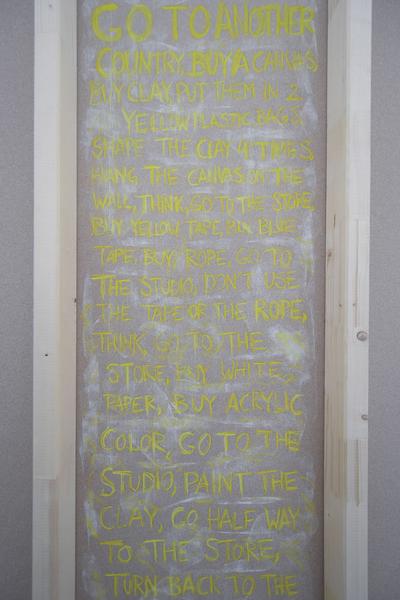 GO TO ANOTHER
COUNTRY, BUY A CANVAS
BUY CLAY, PUT THEM IN 2
YELLOW PLASTIC BAGS,
SHAPE THE CLAY 41 TIMES
HANG THE CANVAS ON THE
WALL, THINK, GO TO THE STORE,
BUY YELLOW TAPE, BUY BLUE
TAPE, BUY ROPE, GO TO
THE STUDIO, DON'T USE
THE TAPE OR THE ROPE,
THINK, GO TO THE
STORE, BUY WHITE
PAPER, BUY ACRYLIC
COLOR, GO TO THE
STUDIO, PAINT THE
CLAY, GO HALF WAY
TO THE STORE,
TURN BACK TO THE